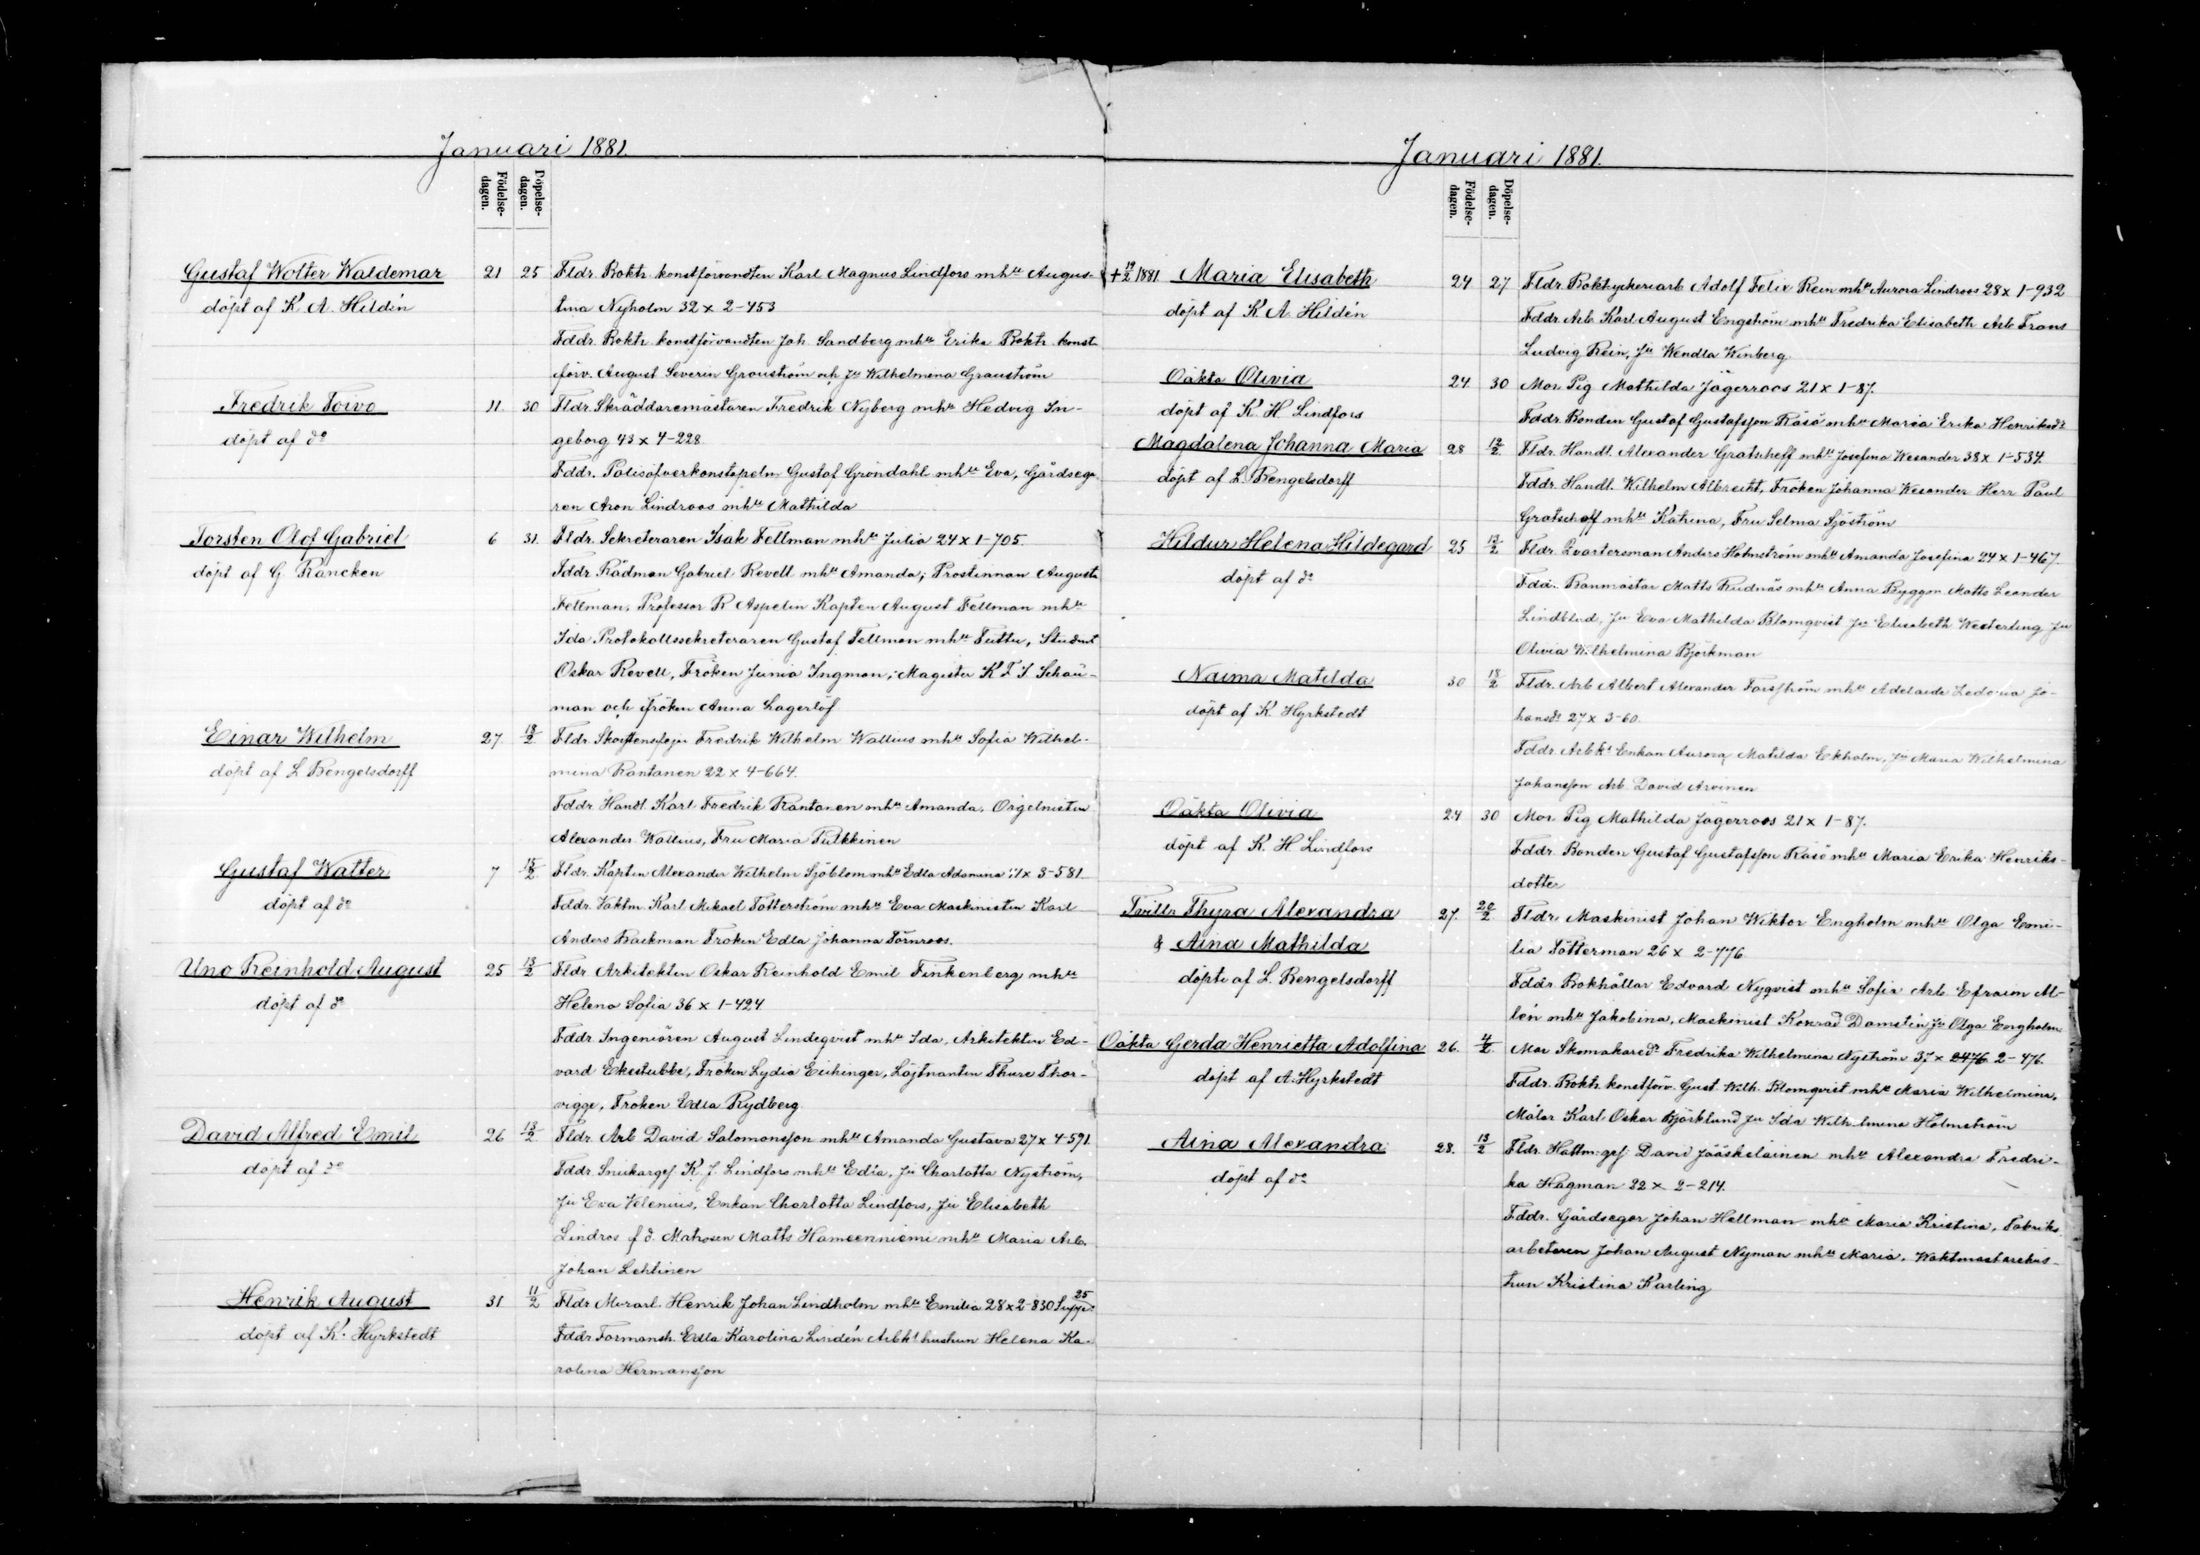 Januari 1881.
Födelse-dagen.
Döpelse-dagen.
Gustaf Wolter Waldemar 21 25 Fldr. Boktr. konstförvandten Karl Magnus Lindfors mhu Augus-
döpt af K. A. Hildén tina Nyholm 32 x 2-453
Fddr. Boktr. konstförvandten Joh. Sandberg mhu Erika Boktr. konst
förv. August Severin Granström och Ju Wilhelmina Granström
Fredrik Toivo 11. 30 Fldr. Skräddaremästaren Fredrik Nyberg mhu Hedvig In-
döpt af do geborg 43 x 4-228
Fddr. Polisöfverkonstapeln Gustaf Gröndahl mhu Eva, Gårdsega
ren Aron Lindroos mhu Mathilda
Torsten Olof Gabriel 6 31. Fldr. Sekreteraren Isak Fellman mhu Julia 24 x 1-705
döpt af G. Rancken Fddr Rådman Gabriel Revell mhu Amanda; Prostinnan Augusta
Fellman, Professor R Aspelin Kapten August Fellman mhu
Ida Protokollssekreteraren Gustaf Fellman mhu Tuttu, Student
Oskar Revell, Fröken Junia Ingman; Magister K F J Schau-
man och fröken Anna Lagerlöf
Einar Wilhelm 27. 13/2 Fldr. Skorstensfejar Fredrik Wilhelm Wallius mhu Sofia Wilhel-
döpt af L Bengelsdorff mina Rantanen 22 x 4-664.
Fddr. Handl Karl Fredrik Rantanen mhu Amanda, Orgelnisten
Alexander Wallius, Fru Maria Pulkkinen
Gustaf Walter 7 13/2 Fldr. Kapten Alexander Wilhelm Sjöblom mhu Edla Adamina x 3-581
döpt af do Fddr. Vaktm. Karl Mikael Tötterström mhu Eva Maskinisten Karl
Anders Backman Fröken Edla Johanna Törnroos.
Uno Reinhold August 25 13/2 Fldr. Arkitekten Oskar Reinhold Emil Finkenberg mhu
döpt af do Helena Sofia 36 x 1-424
Fddr. Ingeniören August Lindeqvist mhu Ida, Arkitekten Ed-
vard Ekestubbe, Fröken Lydia Eichinger, Löjtnanten Thure Thor-
vigge, Fröken Edla Rydberg
David Alfred Emil 26 13/2 Fldr. Arb David Salomonsson mhu Amanda Gustava 27 x 4-591
döpt af do Fddr. Snickarges. K. J. Lindfors mhu Edla, Ju Charlotta Nyström,
Ju Eva Velenius, Enkan Charlotta Lindfors, Ju Elisabeth
Lindros f d. Matrosen Matts Hameenniemi mhu Maria Arb.
Johan Lehtinen
Henrik August 31 11/2 Fldr Murarl. Henrik Johan Lindholm mhu Emilia 28 x 2-830 Supp. 25
döpt af K. Hyrkstedt Fddr Formansh. Edla Karolina Lindén Arbks hushun Helena Ka-
rolina Hermansson
Januari 1881.
Födelse-dagen.
Döpelse-dagen.
+ 19/2 1881 Maria Elisabeth 24 27 Fldr. Boktryckeriarb Adolf Felix Rein mhu Aurora Lindroos 28 x 1-932
döpt af K A. Hildén Fddr. Arb. Karl August Engström mhu Fredrika Elisabeth Arb. Frans
Ludvig Rein, Ju Wendla Winberg
Oäkta Olivia 24 30 Mor. Pig Mathilda Jägerroos 21 x 1-87.
döpt af K. H Lindfors Fddr. Bonden Gustaf Gustafsson Räsö mhu Maria Erika Henriksdr
Magdalena Johanna Maria 28 12/2 Fldr. Handl. Alexander Gratscheff mhu Josefina Wesander 38 x 1-534.
döpt af L. Bengelsdorff Fddr. Handl. Wilhelm Albrecht, Fröken Johanna Wesander Herr Paul
Gratschoff mhu Katrina, Fru Selma Sjöström
Hildur Helena Hildegard 25 13/2 Fldr. Qvartersman Anders Holmström mhu Amanda Josefina 24 x 1-467.
döpt af do Fddr. Banmästar Matts Rudnäs mhu Anna Byggm. Matts Leander
Lindblad, Ju Eva Mathilda Blomqvist Ju Elisabeth Westerling Ju
Olivia Wilhelmina Björkman
Naima Matilda 30 13/2 Fldr. Arb Albert Alexander Forsström mhu Adelaide Ledovia Jo-
döpt af K. Hyrkstedt hansdr 27 x 3-60.
Fddr. Arbks Enkan Aurora Matilda Ekholm, Ju Maria Wilhelmina
Johansson Arb. David Arvinen
Oäkta Olivia 24 30 Mor Pig Mathilda Jägerroos 21 x 1-87.
döpt af K. H Lindfors Fddr. Bonden Gustaf Gustafsson Räsö mhu Maria Erika Henriks-
dotter
Tvillr Thyra Alexandra 27. 20/2 Fldr. Maskinist Johan Wiktor Engholm mhu Olga Emi-
& Aina Mathilda lia Tötterman 26 x 2-776
döpte af L. Bengelsdorff Fddr. Bokhållar Edvard Nyqvist mhu Sofia Arb. Efraim Al-
lén mhu Jakobina, Maskinist Konrad Damstén Ju Olga Engholm
Oäkta Gerda Henrietta Adolfina 26. 4/2 Mor Skomakaredr Fredrika Wilhelmina Nyström 37 x 2476 2-476.
döpt af A. Hyrkstedt Fddr. Boktr. konstförv. Gust. Wilh. Blomqvist mhu Maria Wilhelmina,
Målar Karl Oskar Björklund Ju Ida Wilhelmina Holmström
Aina Alexandra 28. 13/2 Fldr. Hattm. ges. David Jääskeläinen mhu Alexandra Fredri-
döpt af do ka Hagman 22 x 2-214.
Fddr. Gårdsegar Johan Hellman mhu Maria Kristina, Fabriks
arbetaren Johan August Nyman mhu Maria, Waktmästarehus-
hun Kristina Karling